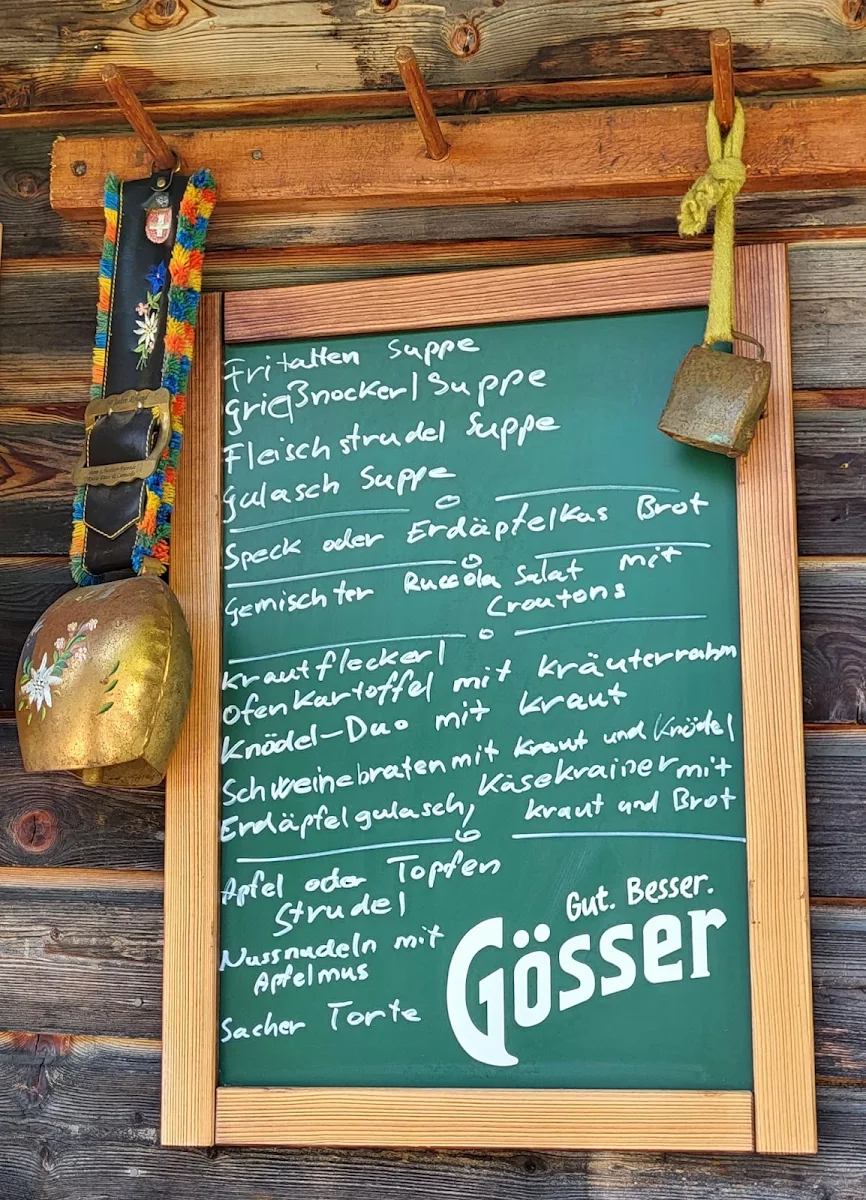 Fritatten Suppe
Grießnockerl Suppe
Fleischstrudel Suppe
Gulasch Suppe
Speck oder Erdäpfelkas Brot
Gemischter Ruccola Salat mit
Croutons
Krautfleckerl
Ofenkartoffel mit Kräuterrahm
Knödel-Duo mit Kraut
Schweinebraten mit Kraut und Knödel
Erdäpfelgulasch, Käsekrainer mit
Kraut und Brot
Apfel oder Topfen
Strudel
Nussnudeln mit
Apfelmus
Sacher Torte
Gut. Besser.
Gösser